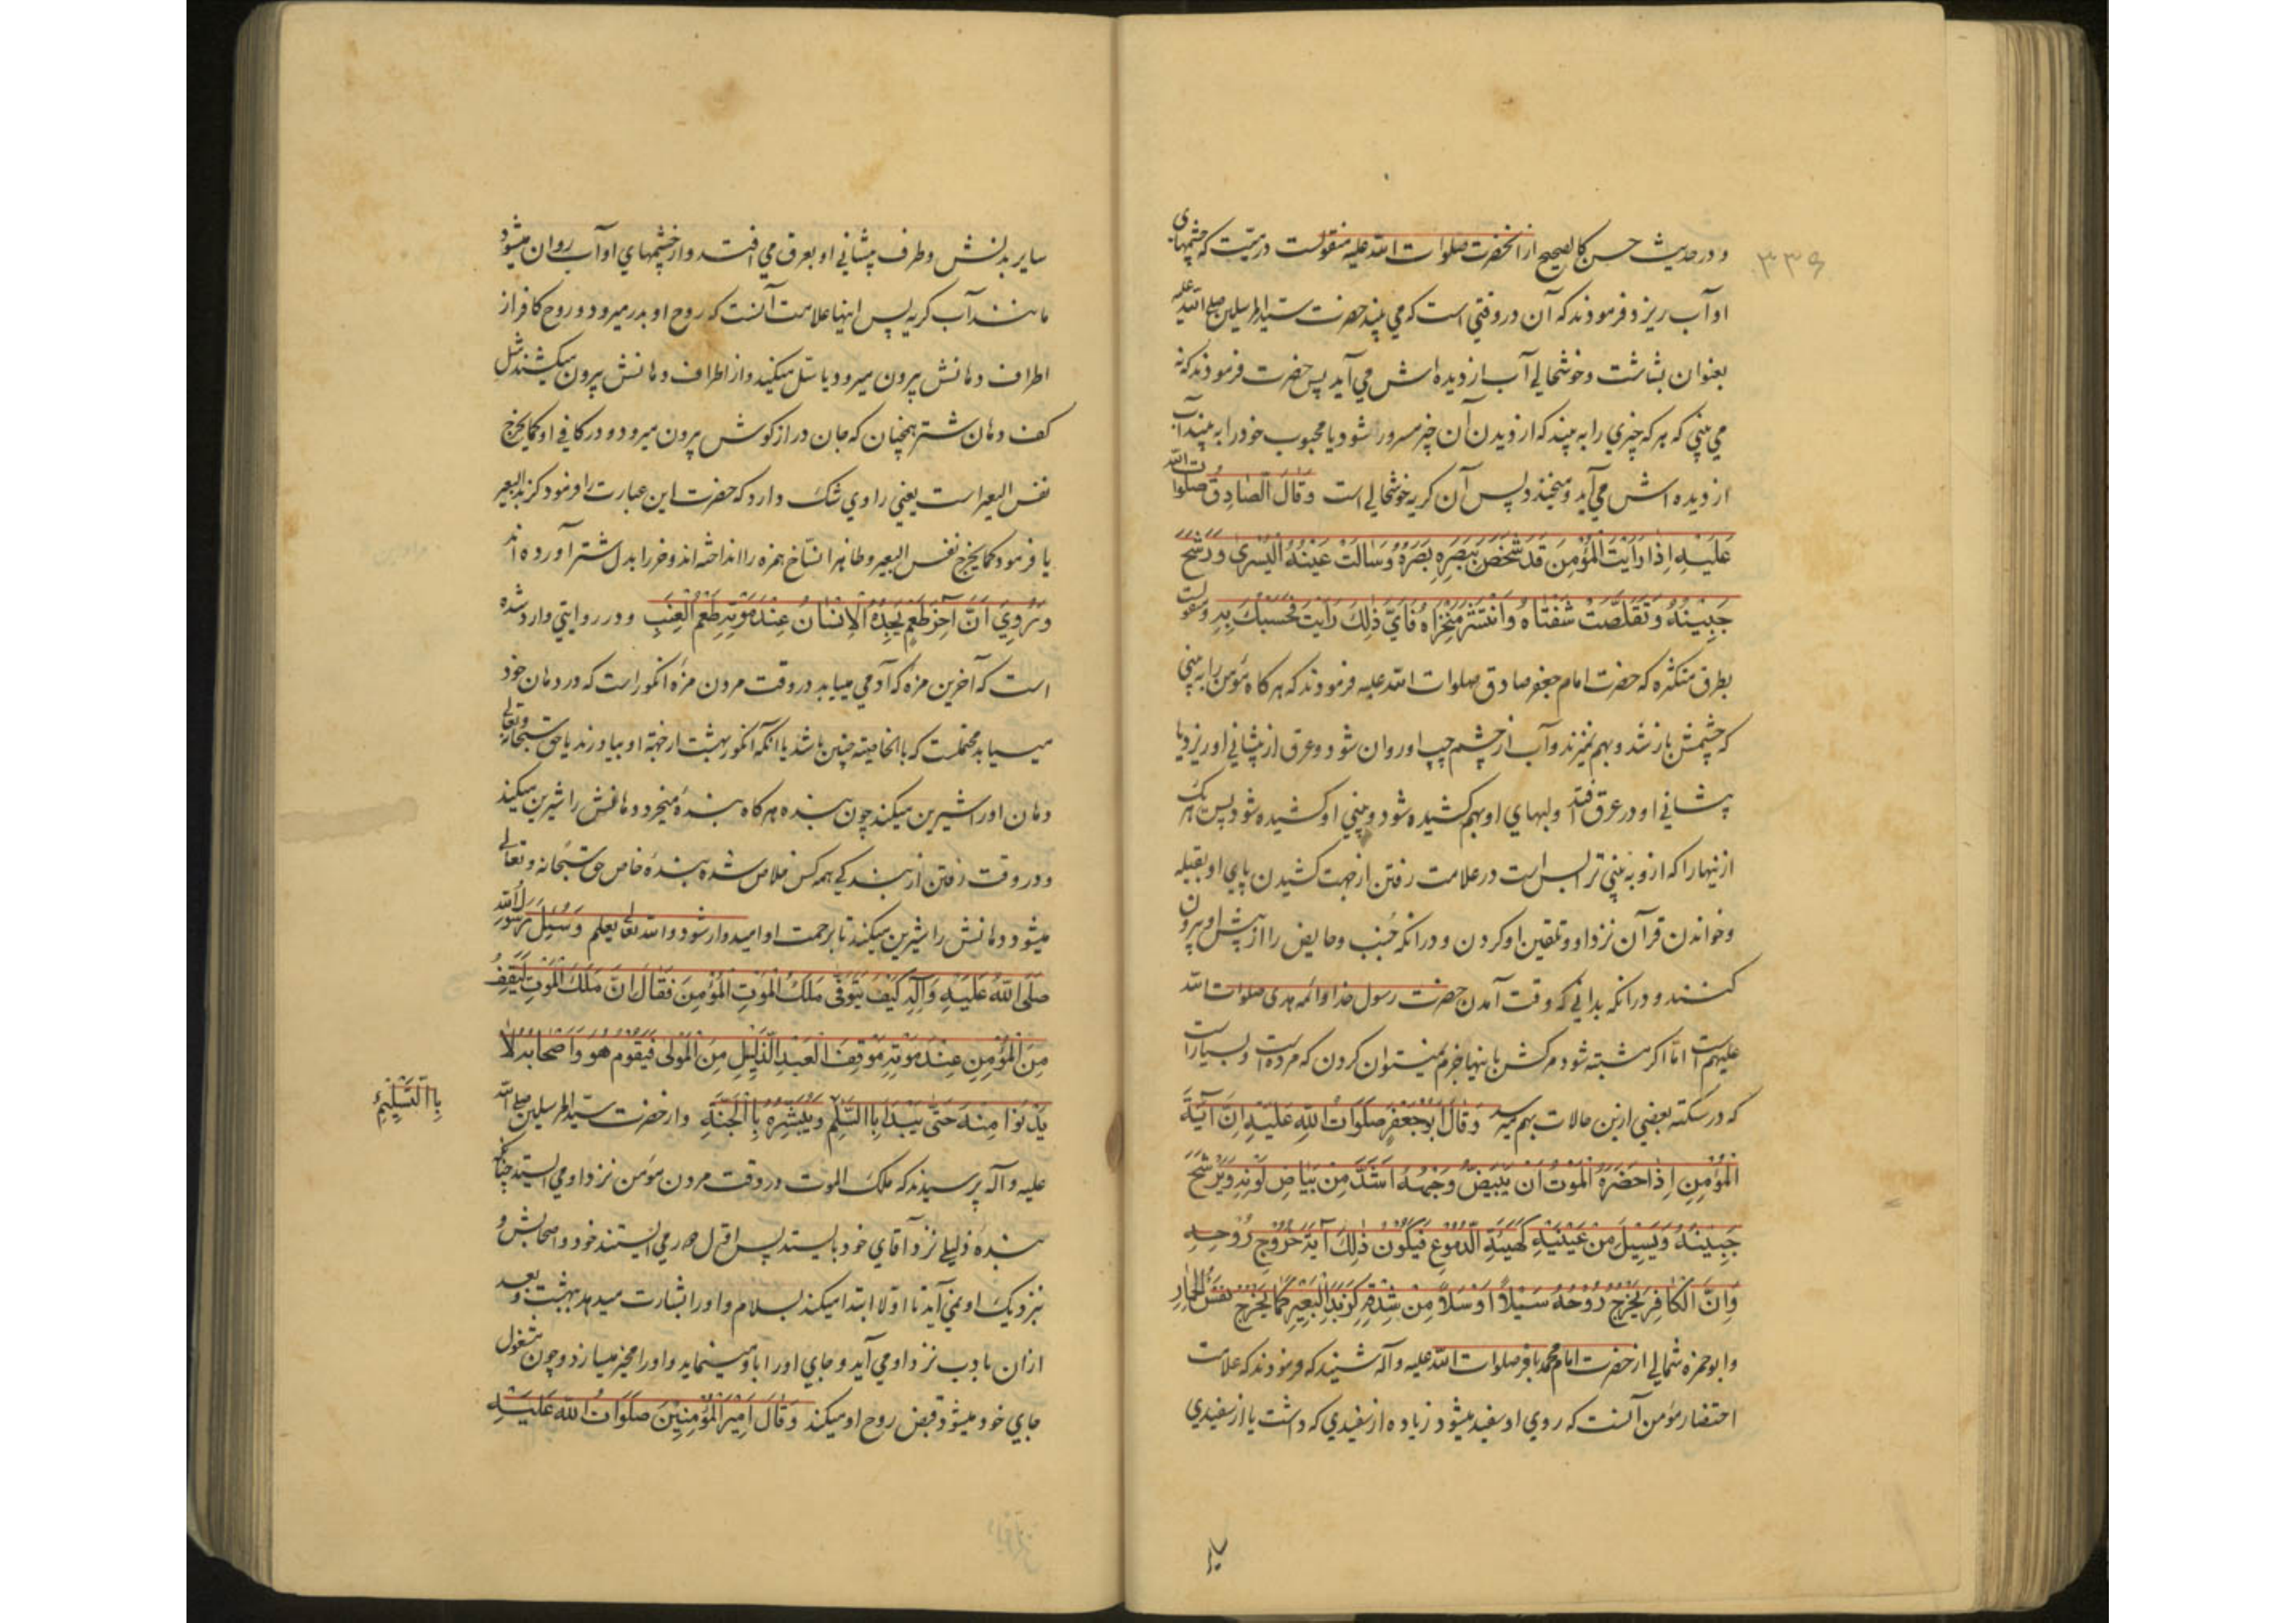 ۳۳۶
و در حدیث حسن کالصحیح از انحضرت صلوات الله علیه منقولست در میّت که چشمهای
او آب ریزد فرمودند که آن در وقتی است که می بیند حضرت سید المرسلین صلی الله علیه
بعنوان بشاشت و خوشحالی آب از دیده اش می آید پس حضرت فرمودند که نه
می بینی که هر که چیزی را به بیند که از دیدن آن چیز مسرور شود یا محبوب خود را به بیند آب
از دیده اش می آید و میخندد پس آن کریه خوشحالی است وَقَالَ الصّادِقُ صلوات الله
عَلَیْهِ اِذَا رَاَیْتَ الْمُؤْمِنَ قَدْ شَخَصَ بِبَصَرِهِ بَصَرُهُ وَسَالَتْ عَیْنُهُ الْیُسْرٰی وَرَشَحَ
جَبِیْنُهُ وَتَقَلَّصَتْ شَفَتَاهُ وَانْتَشَرَ مَنْخِرَاهُ فَاَیَّ ذٰلِکَ رَاَیْتَ فَحَسْبُکَ بِهِ و منقولست
بطرق متکثره که حضرت امام جعفر صادق صلوات الله علیه فرمودند که هر کاه مؤمن را به بینی
که چشمش باز شد و بهم نمیزند و آب از چشم چپ او روان شود و عرق از پیشانی او ریزد یا
پیشانی او در عرق افتد و لبهای او بهم کشیده شود و بینی او کشیده شود پس هر یک
ازینها را که ازو به بینی ترا بس است در علامت رفتن از جهت کشیدن پای او بقبله
و خواندن قرآن نزد او و تلقین او کردن و در انکه جُنب و حایض را از پیش او بیرون
کنند و در انکه بدانی که وقت آمدن حضرت رسول خدا و ائمه هدی صلوات الله
علیهم است امّا اکر مشتبه شود مرکش باینها جزم نمیتوان کردن که مرده است و بسیار است
که در سکته بعضی ازین حالات بهم میرسد وَقَالَ اَبُوجَعْفَرٍ صَلَوَاتُ اللهِ عَلَیْهِ اِنَّ آیَةَ
الْمُؤْمِنِ اِذَا حَضَرَهُ الْمَوْتُ اَنْ یَبْیَضَّ وَجْهُهُ اَشَدَّ مِنْ بَیَاضِ لَوْنِهِ وَیَرْشَحَ
جَبِیْنُهُ وَیَسِیْلَ مِنْ عَیْنَیْهِ کَهَیْئَةِ الدُّمُوْعِ فَیَکُوْنُ ذٰلِکَ آیَةَ خُرُوْجِ رُوْحِهِ
وَاِنَّ الْکَافِرَ یَخْرُجُ رُوْحُهُ سَیْلاً اَوْ سَلاًّ مِنْ شِدْقِهِ کَزَبَدِ الْبَعِیْرِ کَمَا یَخْرُجُ نَفْسُ الْحِمَارِ
و ابو حمزه ثمالی از حضرت امام محمد باقر صلوات الله علیه و آله شنید که فرمودند که علامت
احتضار مؤمن آنست که روی او سفید میشود زیاده از سفیدی که داشت یا از سفیدی
سایر بدنش و طرف پیشانی او بعرق می افتد و از چشمهای او آب روان میشود
مانند آب کریه پس اینها علامت آنست که روح او بدر میرود و روح کافر از
اطراف دهانش بیرون میرود یا سَل میکنید و از اطراف دهانش بیرون میکشند مثل
کف دهان شتر همچنان که جان درازکوش بیرون میرود و در کافی او کما یخرج
نفس البعیر است یعنی راوی شک دارد که حضرت این عبارت را فرمود کزبد البعیر
یا فرمود کما یخرج نفس البعیر و ظاهرا نسّاخ همزه را انداخته اند و خر را بدل شتر آورده اند
وَرُوِیَ اَنَّ آخِرَ طَعْمٍ یَجِدُهُ الْاِنْسَانُ عِنْدَ مَوْتِهِ طَعْمُ الْعِنَبِ و در روایتی وارد شده
است که آخرین مزه که آدمی مییابد در وقت مردن مزه انکور است که در دهان خود
مییابد محتملست که بالخاصیته چنین باشد یا انکه انکور بهشت از جهته او بیاورند یا حق سبحانه و تعالی
دهان او را شیرین میکند چون بنده هر کاه بندهٔ میخرد دهانش را شیرین میکند
و در وقت رفتن از بندکی همه کس خلاص شده بندهٔ خاص حق سبحانه و تعالی
میشود دهانش را شیرین میکنند تا برحمت او امیدوار شود و الله تعالی یعلم وَسُئِلَ رَسُوْلُ اللهِ
صَلَّی اللهُ عَلَیْهِ وَآلِهِ کَیْفَ یَتَوَفّٰی مَلَکُ الْمَوْتِ الْمُؤْمِنَ فَقَالَ اِنَّ مَلَکَ الْمَوْتِ لَیَقِفُ
مِنَ الْمُؤْمِنِ عِنْدَ مَوْتِهِ مَوْقِفَ الْعَبْدِ الذَّلِیْلِ مِنَ الْمَوْلٰی فَیَقُوْمُ هُوَ وَاَصْحَابُهُ لَا
یَدْنُوا مِنْهُ حَتّٰی یَبْدَا بِاالتَّسْلِمِ وَیُبَشِّرَهُ بِاالْجَنَّةِ و از حضرت سیّد المرسلین صلی الله
بِاالتَّسْلِیْمِ
علیه و آله پرسیدند که ملک الموت در وقت مردن مؤمن نزد او می ایستد چنانکه
بندهٔ ذلیلی نزد آقای خود بایستد پس اوّل دور می ایستند خود و اصحابش و
نزدیک او نمی آید تا اوّلا ابتدا میکند بسلام و او را بشارت میدهد ببهشت و بعد
ازان بادب نزد او می آید و جای او را باو مینماید و او را مخیّر میسازد و چون مشغول
جای خود میشود قبض روح او میکند وَقَالَ اَمِیْرُ الْمُؤْمِنِیْنَ صَلَوَاتُ اللهِ عَلَیْهِ